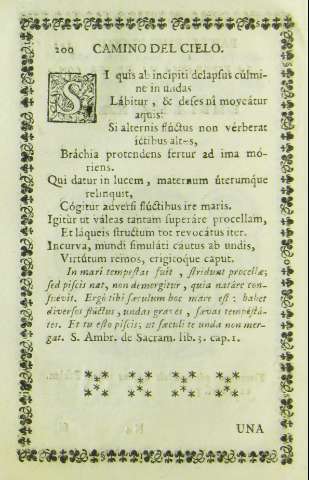 200 CAMINO DEL CIELO.
SI quis ab incipiti delapsus cúlmi-
ne in undas
Lábitur, & deses ni moveátur
aquis:
Si alternis flúctus non vérberat
íctibus altos,
Bráchia protendens fertur ad ima mó-
riens.
Qui datur in lucem, maternum úterumque
relinquit,
Cógitur adversi flúctibus ire maris.
Igitur ut váleas tantam superáre procellam,
Et láqueis structum tot revocátus iter.
Incurva, mundi simuláti cáutus ab undis,
Virtútum remos, erigitoque caput.
In mari tempestas fuit, stridunt procellæ;
sed piscis nat, non demergitur, quia natáre con-
suévit. Ergò tibi sæculum hoc mare est: habet
diversos fluctus, undas graves, sævas tempestá-
tes. Et tu esto piscis; ut sæculi te unda non mer-
gat. S. Ambr. de Sacram. lib. 3. cap. 1.
UNA